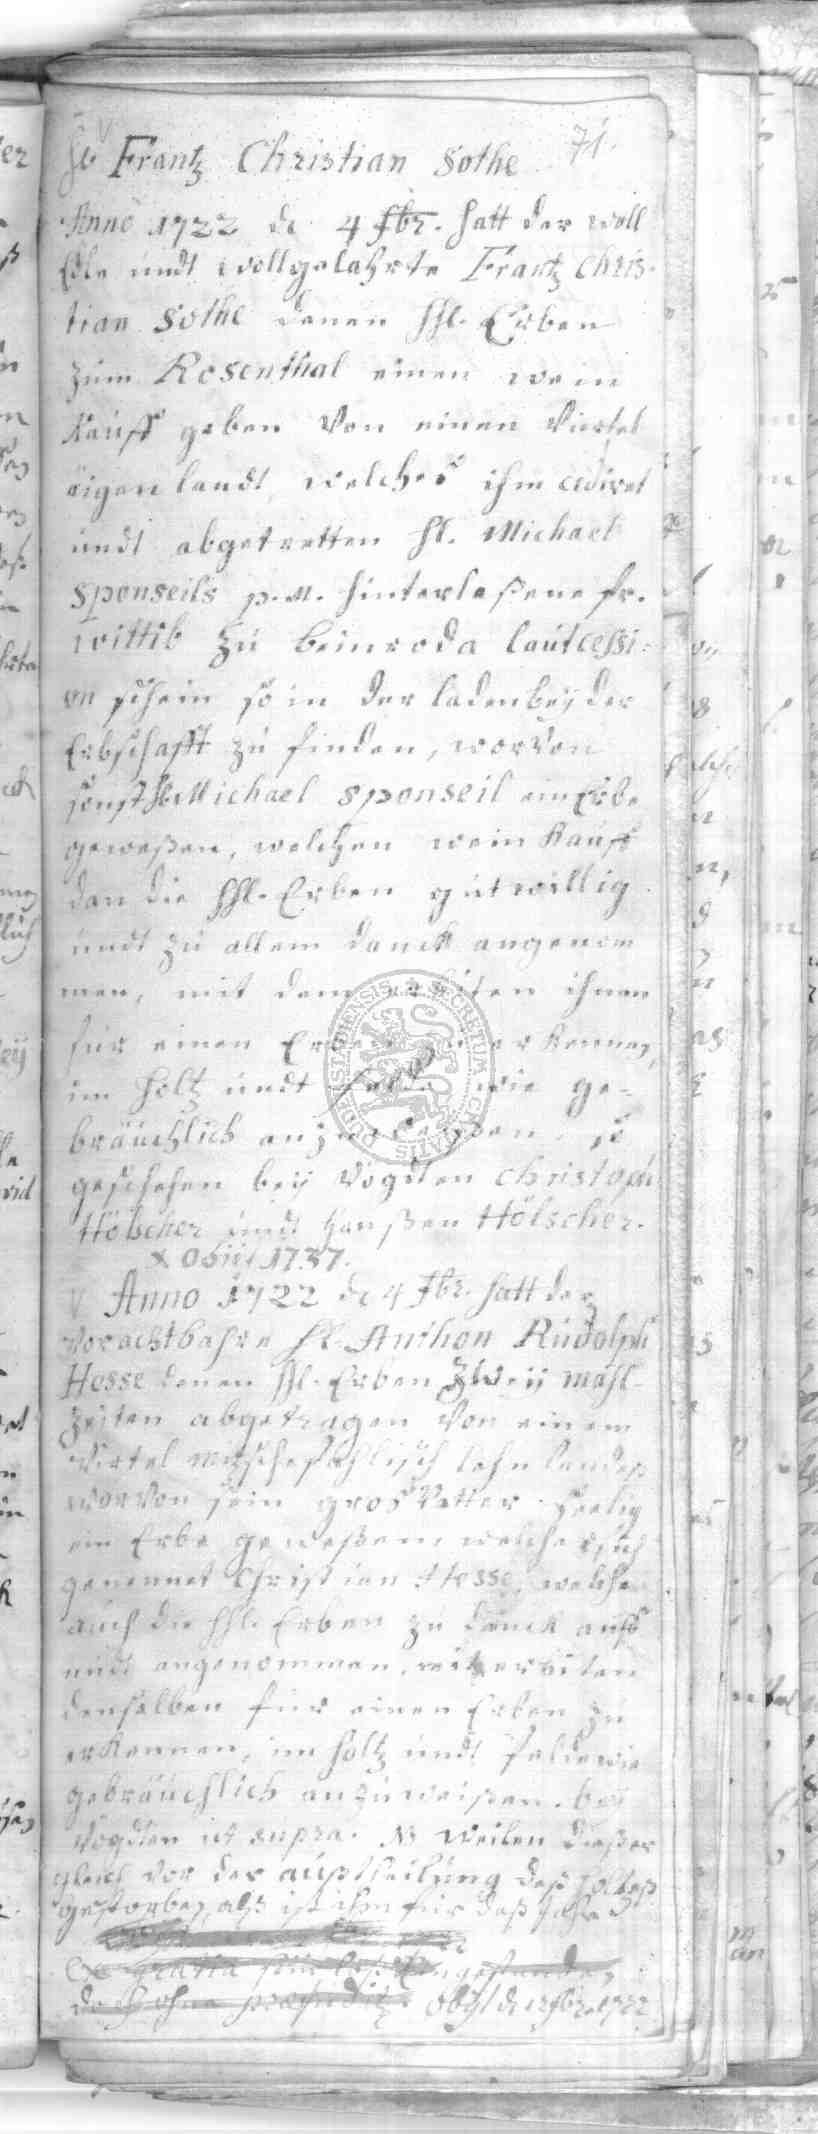 71.
H. Frantz Christian Sothe
Anno 1722 d. 4 9br. hatt der woll
Edle undt wollgelahrte Frantz Chris-
tian Sothe denen HHl. Erben
zum Rosenthal einen wein
Kauff geben von einen Viertel
eigen landt, welches ihm cediret
undt abgetretten Hl. Michael
Sponseils p.m. hinterlaßene fr.
wittib zu beinroda laut cessi-
on schein so in der laden beÿ der
Erbschafft zu finden, worvon
sonst H. Michael Sponseil ein Erbe
geweßen, welchen wein Kauff
dan die HHl. Erben gutwillig
undt zu allem danck angenom
men, mit dem erbiten ihnen
für einen Erben zu erkennen,
im holtz undt felde wie ge-
bräuchlich anzuweißen. so
geschehen beÿ Vögdten Christoph
Hölscher undt Hanßen Hölscher.
x Obiit 1737.
V Anno 1722 d. 4 9br. hatt der
Vorachtbahre Hl. Anthon Rudolph
Hesse denen HHl. Erben zweÿ mahl-
zeiten abgetragen von einem
Virtel lehn landeß
worvon sein gros Vatter seelig
ein Erbe geweßen, welcher sich
genennet Christian Hesse, welche
auch die HHl. Erben zu danck auff
undt angenommen, mit erbiten
denselben für einen Erben zu
erkennen, im holtz undt felde wie
gebräuchlich anzuweißen. beÿ
Vögdten ut supra. NB weilen dießer
gleich vor der außtheilung deß holtzeß
gestorben, alß ist ihm für daß Jahr
ex gratia eingestanden
doch ohne præjuditz. obyt d. 12 9br. 1722
SECRETUM CIVITATIS DUDERSTADIENSIS